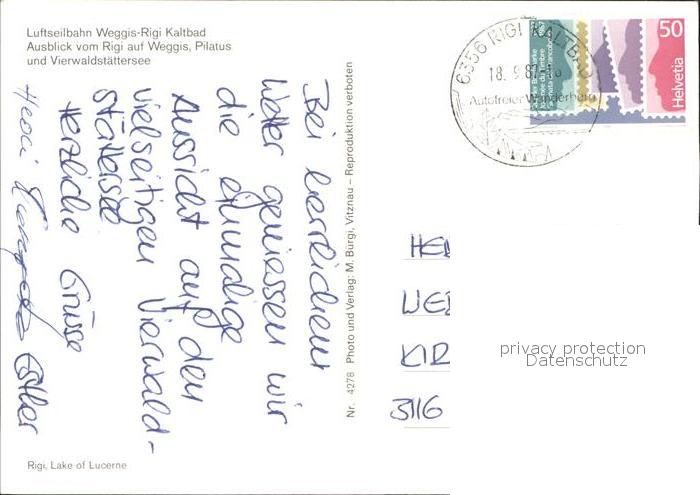 Luftseilbahn Weggis-Rigi Kaltbad
Ausblick vom Rigi auf Weggis, Pilatus
und Vierwaldstättersee
Bei herrlichem
Wetter geniessen wir
die einmalige
Aussicht auf den
vielseitigen Vierwald-
stättersee
Herzliche Grüsse
Heidi
Esther
Rigi, Lake of Lucerne
Nr. 4278 Photo und Verlag: M. Bürgi, Vitznau – Reproduktion verboten
6356 RIGI KALTBAD
18. 9. 8
Autofreier Wanderberg
50
Helvetia
HE
WE
KIR
3116
privacy protection
Datenschutz